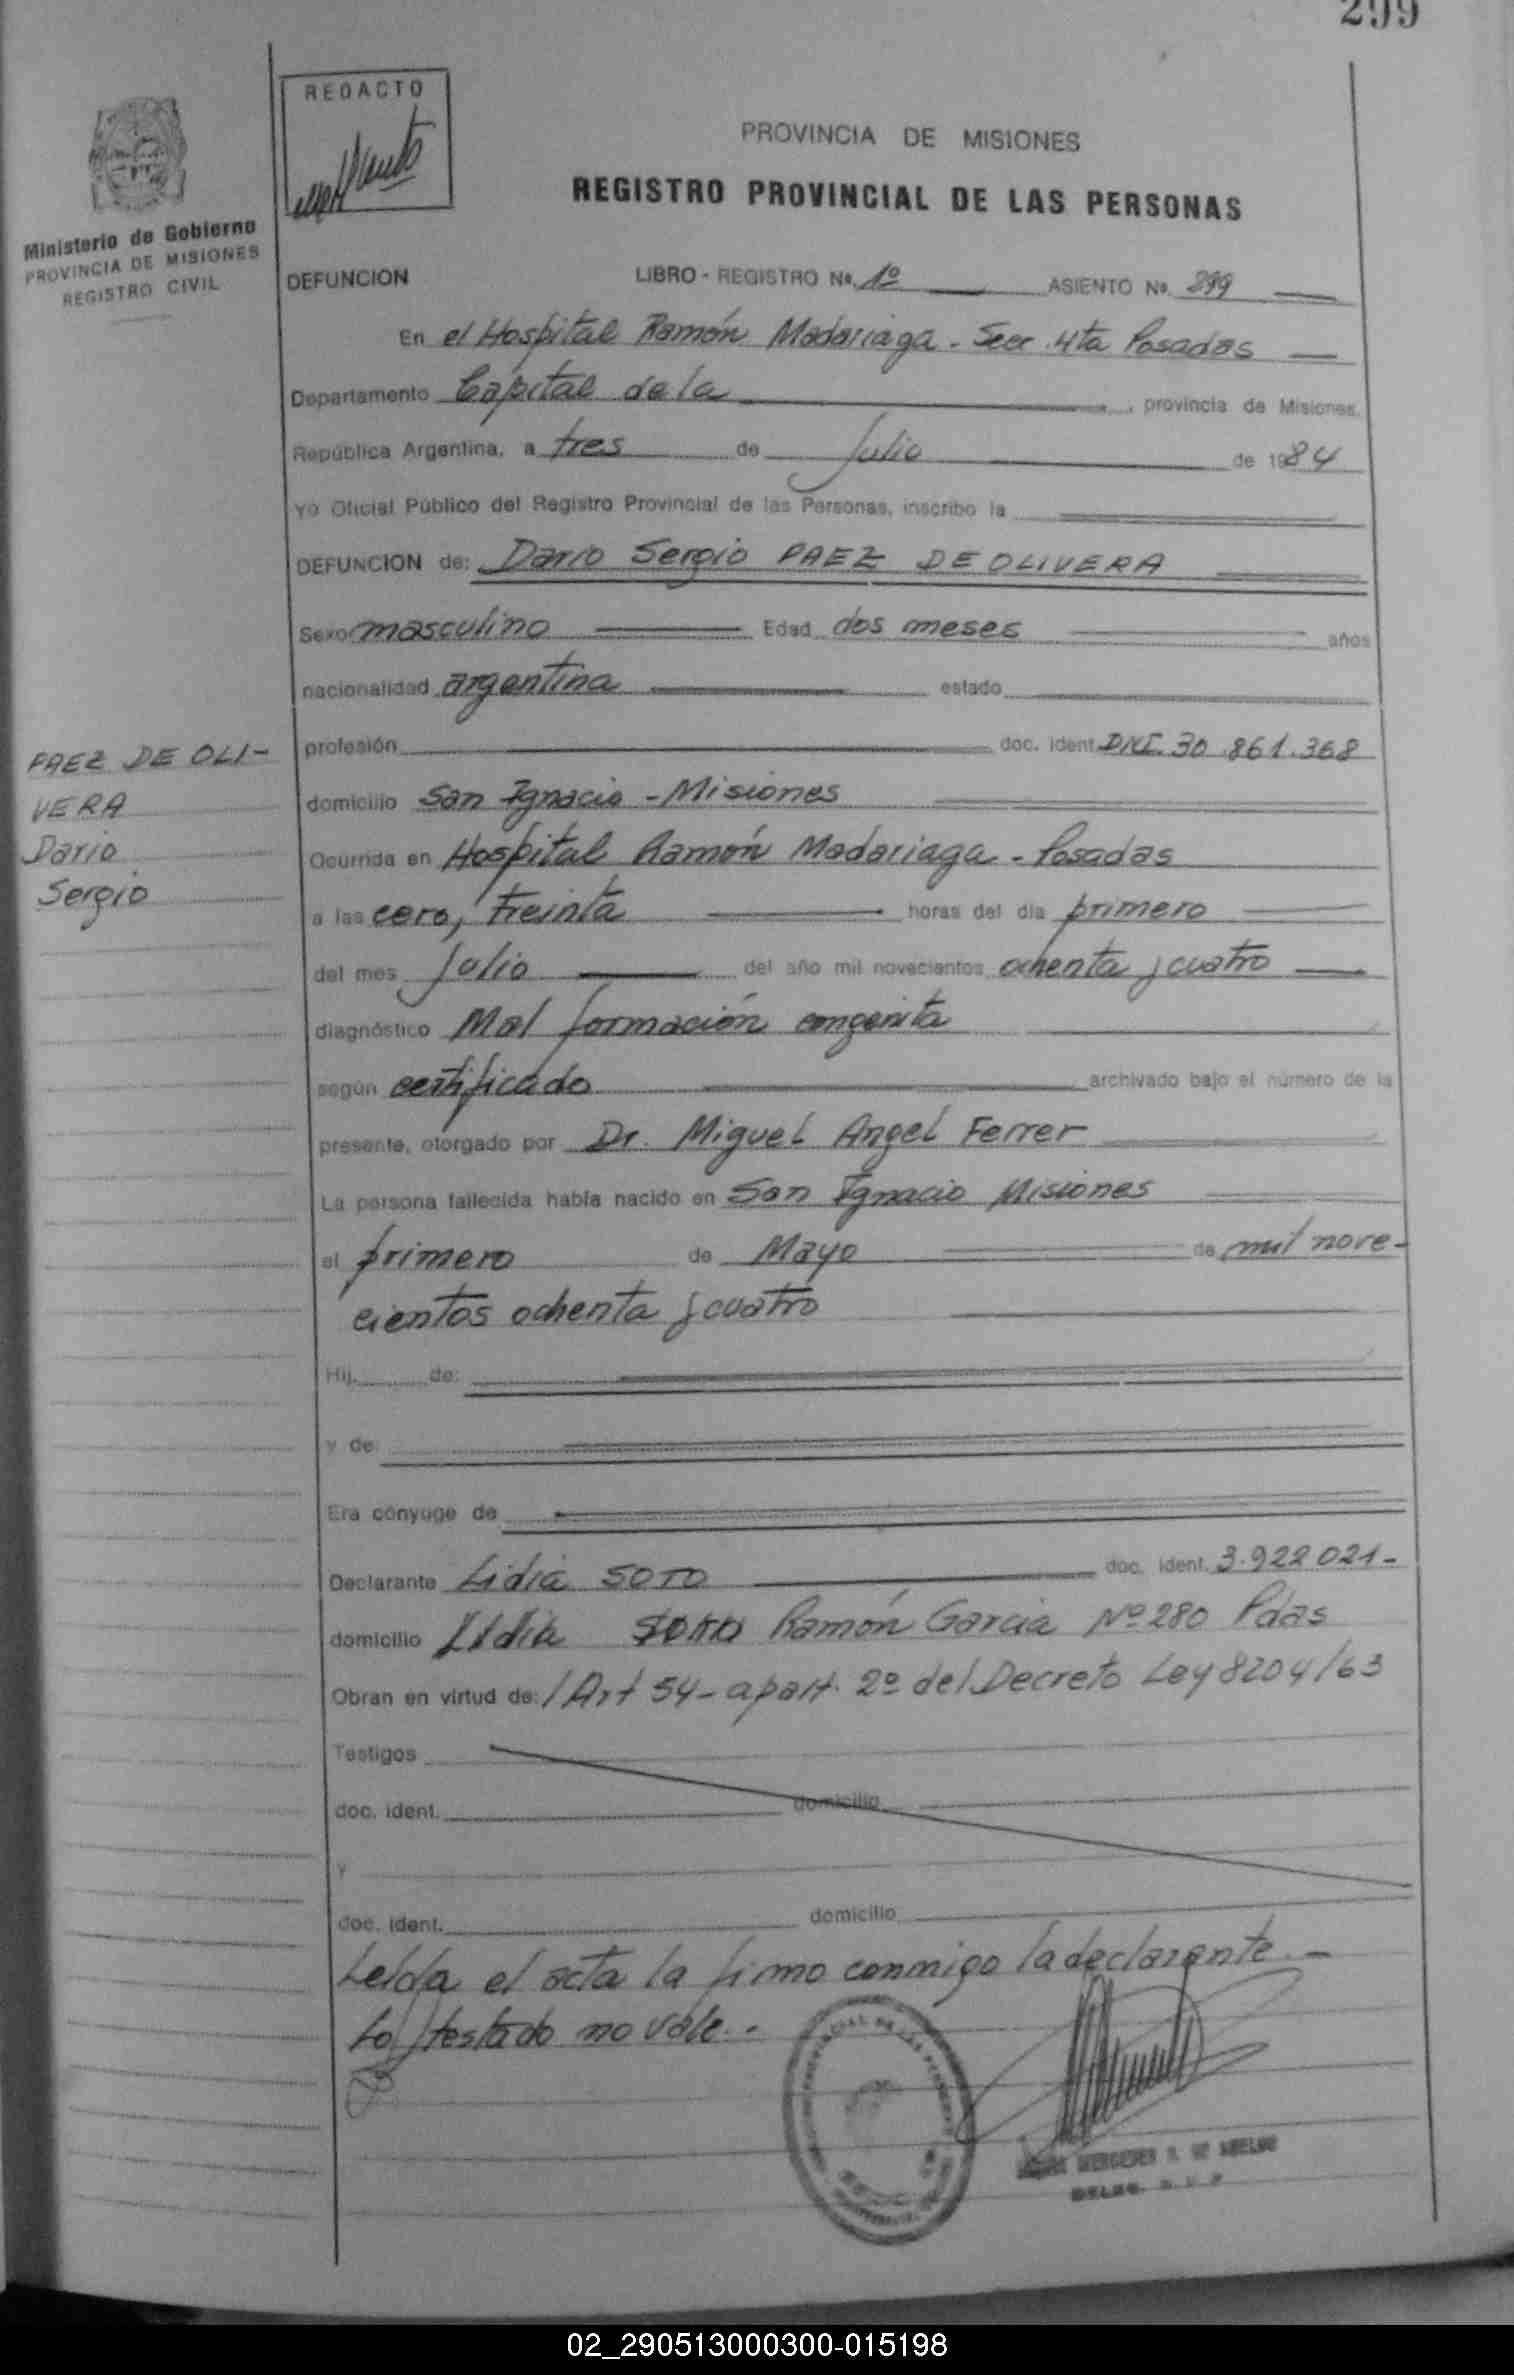 299
REDACTO
PROVINCIA DE MISIONES
REGISTRO PROVINCIAL DE LAS PERSONAS
Ministerio de Gobierno
PROVINCIA DE MISIONES
REGISTRO CIVIL
DEFUNCION LIBRO - REGISTRO No. 1º ASIENTO No. 299
En el Hospital Ramón Madariaga - Secc. 4ta Posadas
Departamento Capital de la , provincia de Misiones,
República Argentina, a tres de Julio de 1984
Yo Oficial Público del Registro Provincial de las Personas, inscribo la
DEFUNCION de: Dario Sergio PAEZ DE OLIVERA
Sexo masculino Edad dos meses años
nacionalidad argentina estado
PAEZ DE OLI-
VERA
Dario
Sergio
profesión doc. ident. DNI. 30.861.368
domicilio San Ignacio - Misiones
Ocurrida en Hospital Ramón Madariaga - Posadas
a las cero, treinta horas del día primero
del mes Julio del año mil novecientos ochenta y cuatro
diagnóstico Mal formación congenita
según certificado archivado bajo el número de la
presente, otorgado por Dr. Miguel Angel Ferrer
La persona fallecida había nacido en San Ignacio Misiones
el primero de Mayo de mil nove-
cientos ochenta y cuatro
Hij de:
y de:
Era cónyuge de
Declarante Lidia SOTO doc. ident. 3.922 021-
domicilio Lidia SOTO Ramón Garcia Nº 280 Pdas
Obran en virtud de: /Art 54- apart. 2º del Decreto Ley 8204/63
Testigos
doc. ident. domicilio
y
doc. ident. domicilio
Leida el acta la firmo conmigo la declarante.-
Lo testado no vale.-
MERCEDES
02_290513000300-015198